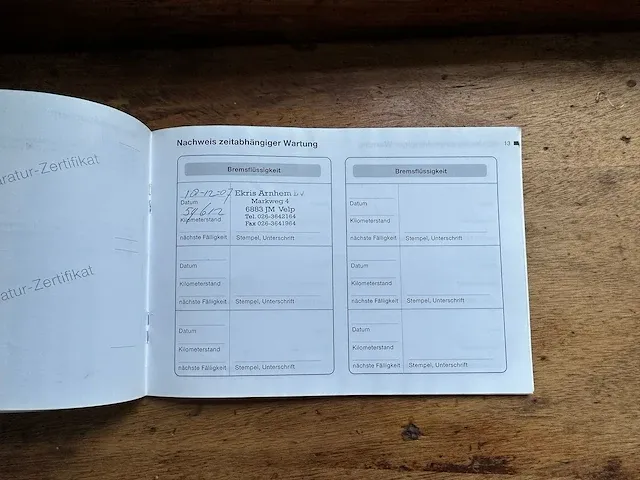 ratur-Zertifikat
ratur-Zertifikat
Nachweis zeitabhängiger Wartung
13
Bremsflüssigkeit
10-12-07
Datum
54612
Kilometerstand
nächste Fälligkeit
Ekris Arnhem B.V.
Markweg 4
6883 JM Velp
Tel. 026-3642164
Fax 026-3641964
Stempel, Unterschrift
Datum
Kilometerstand
nächste Fälligkeit
Stempel, Unterschrift
Datum
Kilometerstand
nächste Fälligkeit
Stempel, Unterschrift
Bremsflüssigkeit
Datum
Kilometerstand
nächste Fälligkeit
Stempel, Unterschrift
Datum
Kilometerstand
nächste Fälligkeit
Stempel, Unterschrift
Datum
Kilometerstand
nächste Fälligkeit
Stempel, Unterschrift